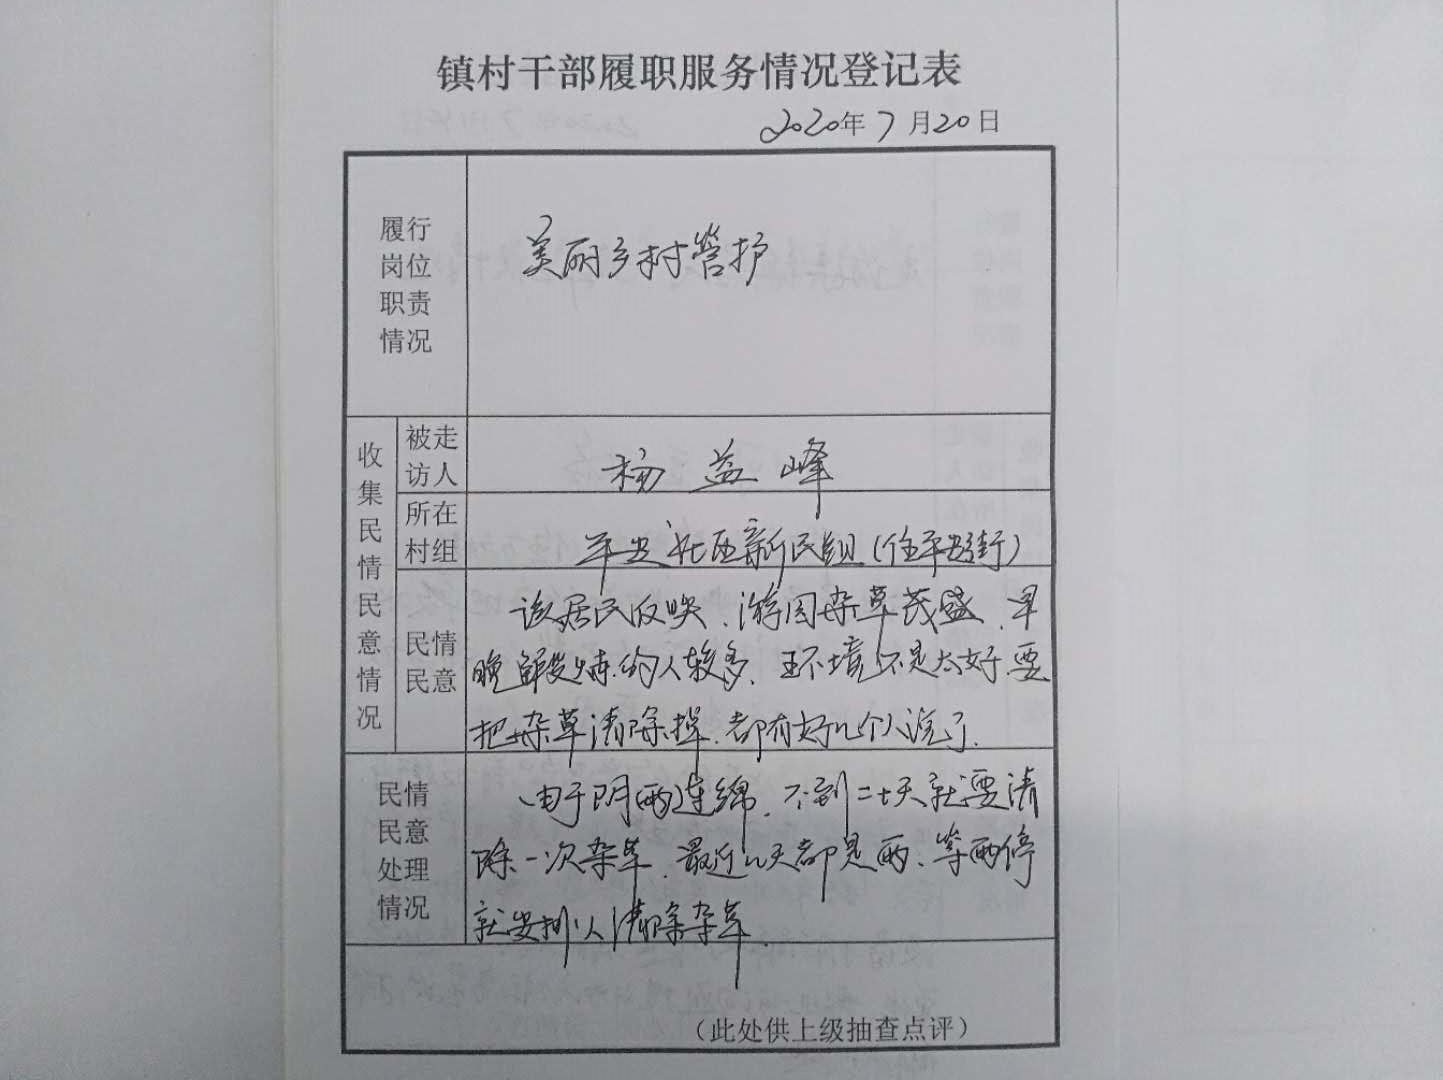 镇村干部履职服务情况登记表
2020年7月20日
履行
岗位
职责
情况
美丽乡村管护
收集民情民意情况
被走
访人
杨益峰
所在
村组
平安社区新民组(住平安街)
民情
民意
该居民反映、游园杂草茂盛、早
晚锻炼的人较多、环境不是太好、要
把杂草清除掉、都有好几个人说了.
民情
民意
处理
情况
由于阴雨连绵、不到二十天就要清
除一次杂草、最近几天都是雨、等雨停
就安排人清除杂草.
(此处供上级抽查点评)